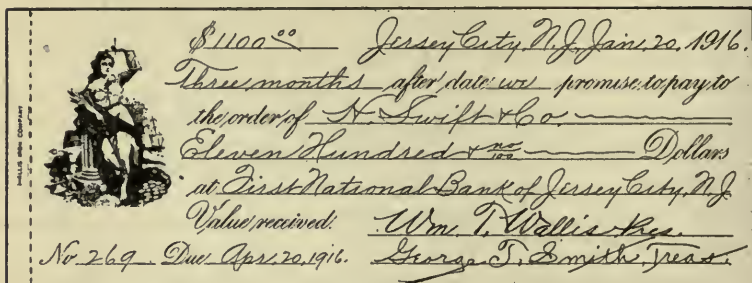 $1100 00 Jersey City, N.J. Jan. 20, 1916.
Three months after date we promise to pay to
the order of N. Swift & Co.
Eleven Hundred & no/100 Dollars
at First National Bank of Jersey City, N.J.
Value received. Wm. T. Wallis Pres.
No 269 Due Apr. 20, 1916. George T. Smith, Treas.
WALLIS IRON COMPANY